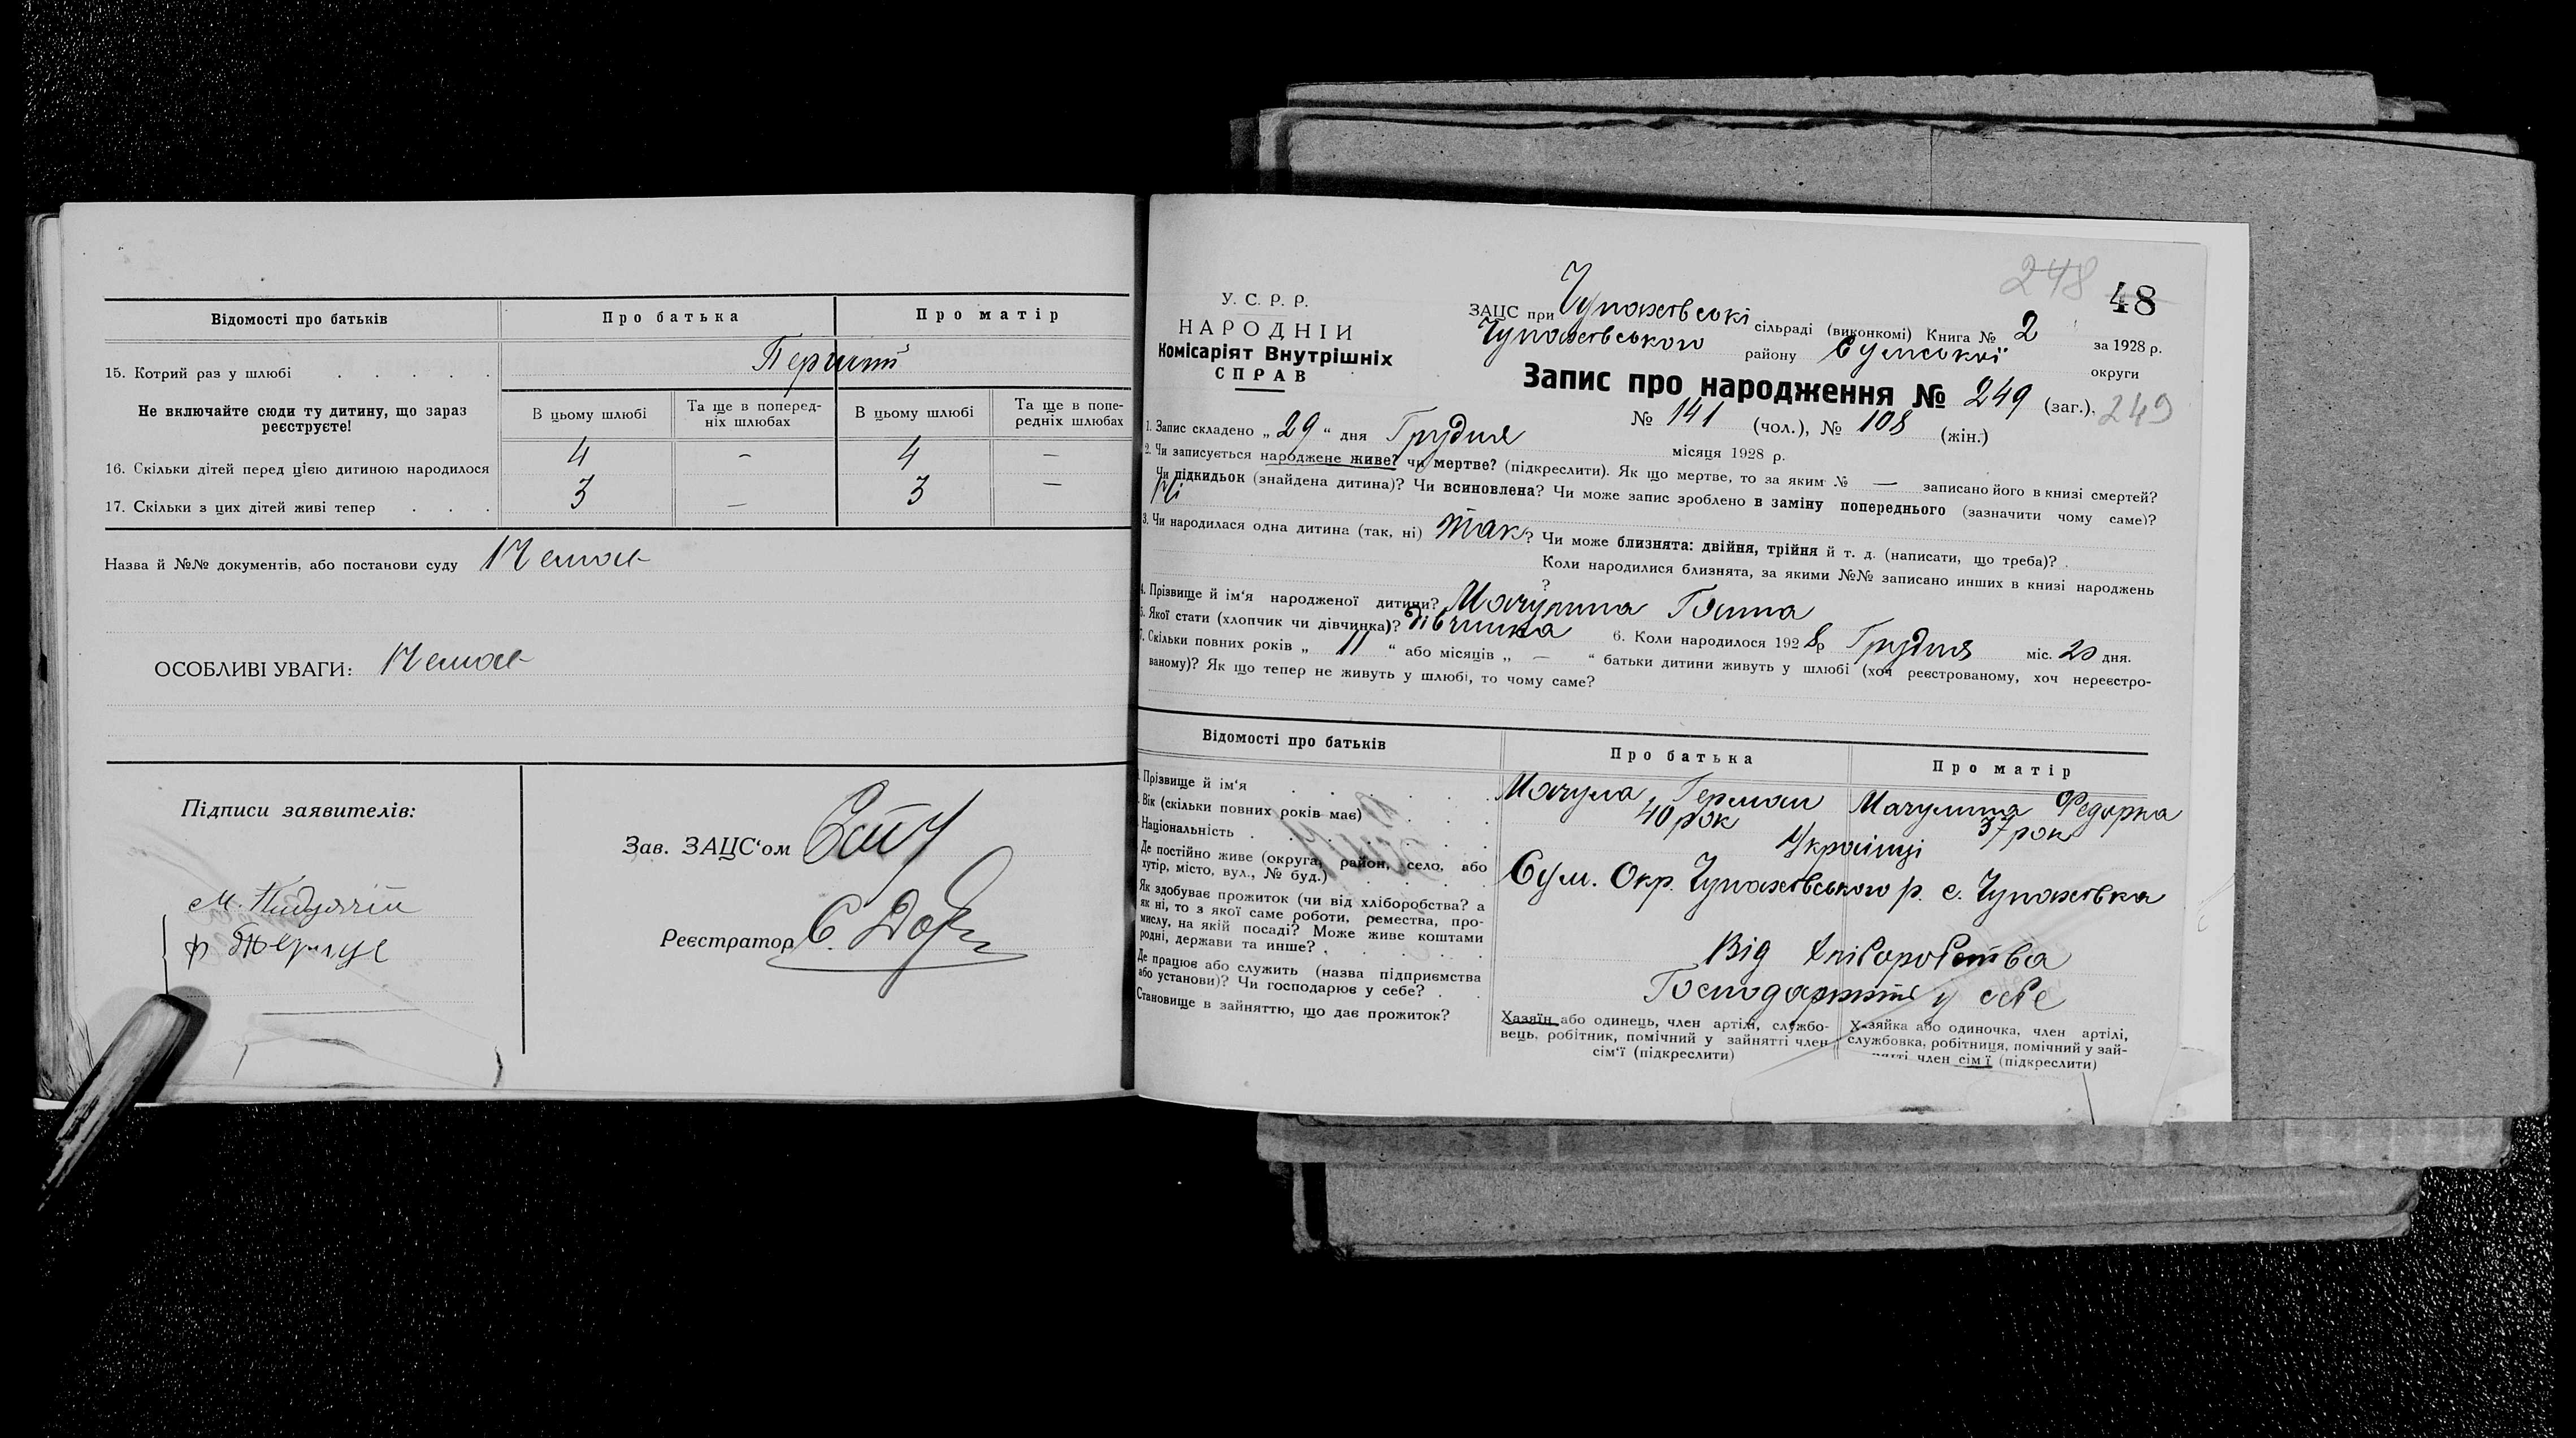 Відомості про батьків
Про батька
Про матір
15. Котрий раз у шлюбі . . . . .
Перший
Не включайте сюди ту дитину, що зараз реєструєте!
В цьому шлюбі
Та ще в поперед-
ніх шлюбах
В цьому шлюбі
Та ще в попе-
редніх шлюбах
16. Скільки дітей перед цією дитиною народилося
4 – 4 –
17. Скільки з цих дітей живі тепер . . .
3 – 3 –
Назва й №№ документів, або постанови суду Немає
ОСОБЛИВІ УВАГИ: Немає
Підписи заявителів:
Зав. ЗАЦС'ом
Реєстратор
У. С. Р. Р.
НАРОДНІЙ
Комісаріят Внутрішніх
СПРАВ
248 48
ЗАЦС при Чупахівські сільраді (виконкомі) Книга № 2 за 1928 р.
Чупахівського району Сумської округи
Запис про народження № 249 (заг.), 249
№ 141 (чол.), № 108 (жін.)
1. Запис складено „ 29 “ дня Грудня місяця 1928 р.
2. Чи записується народжене живе? чи мертве? (підкреслити). Як що мертве, то за яким № — записано його в книзі смертей?
Чи підкидьок (знайдена дитина)? Чи всиновлена? Чи може запис зроблено в заміну попереднього (зазначити чому саме)?
Ні
3. Чи народилася одна дитина (так, ні) так? Чи може близнята: двійня, трійня й т. д. (написати, що треба)? .
Коли народилися близнята, за якими №№ записано инших в книзі народжень
?
4. Прізвище й ім'я народженої дитини? Мачулина Ганна
5. Якої стати (хлопчик чи дівчинка)? дівчинка 6. Коли народилося 1928 р Грудня міс. 20 дня.
7. Скільки повних років „ 11 “ або місяців „ — “ батьки дитини живуть у шлюбі (хоч реєстрованому, хоч нереєстро-
ваному)? Як що тепер не живуть у шлюбі, то чому саме?
Відомості про батьків
Про батька
Про матір
Прізвище й ім'я . . . . . .
Мачула Герман
Мачулина Федорка
Вік (скільки повних років має) . . .
40 рок
37 рок
Національність . . . . . . .
Українці
Де постійно живе (округа, район, село, або
хутір, місто, вул., № буд.) . . . . .
Сум. Окр. Чупахівського р. с. Чупахівка
Як здобуває прожиток (чи від хліборобства? а
як ні, то з якої саме роботи, ремества, про-
мислу, на якій посаді? Може живе коштами
родні, держави та инше? . . . . .
Від хліборобства
Де працює або служить (назва підприємства
або установи)? Чи господарює у себе? . .
у себе
Становище в зайняттю, що дає прожиток?
Хазяїн або одинець, член артілі, службо-
вець, робітник, помічний у зайнятті член
сім'ї (підкреслити)
Хазяйка або одиночка, член артілі,
службовка, робітниця, помічний у зай-
нятті член сім'ї (підкреслити)